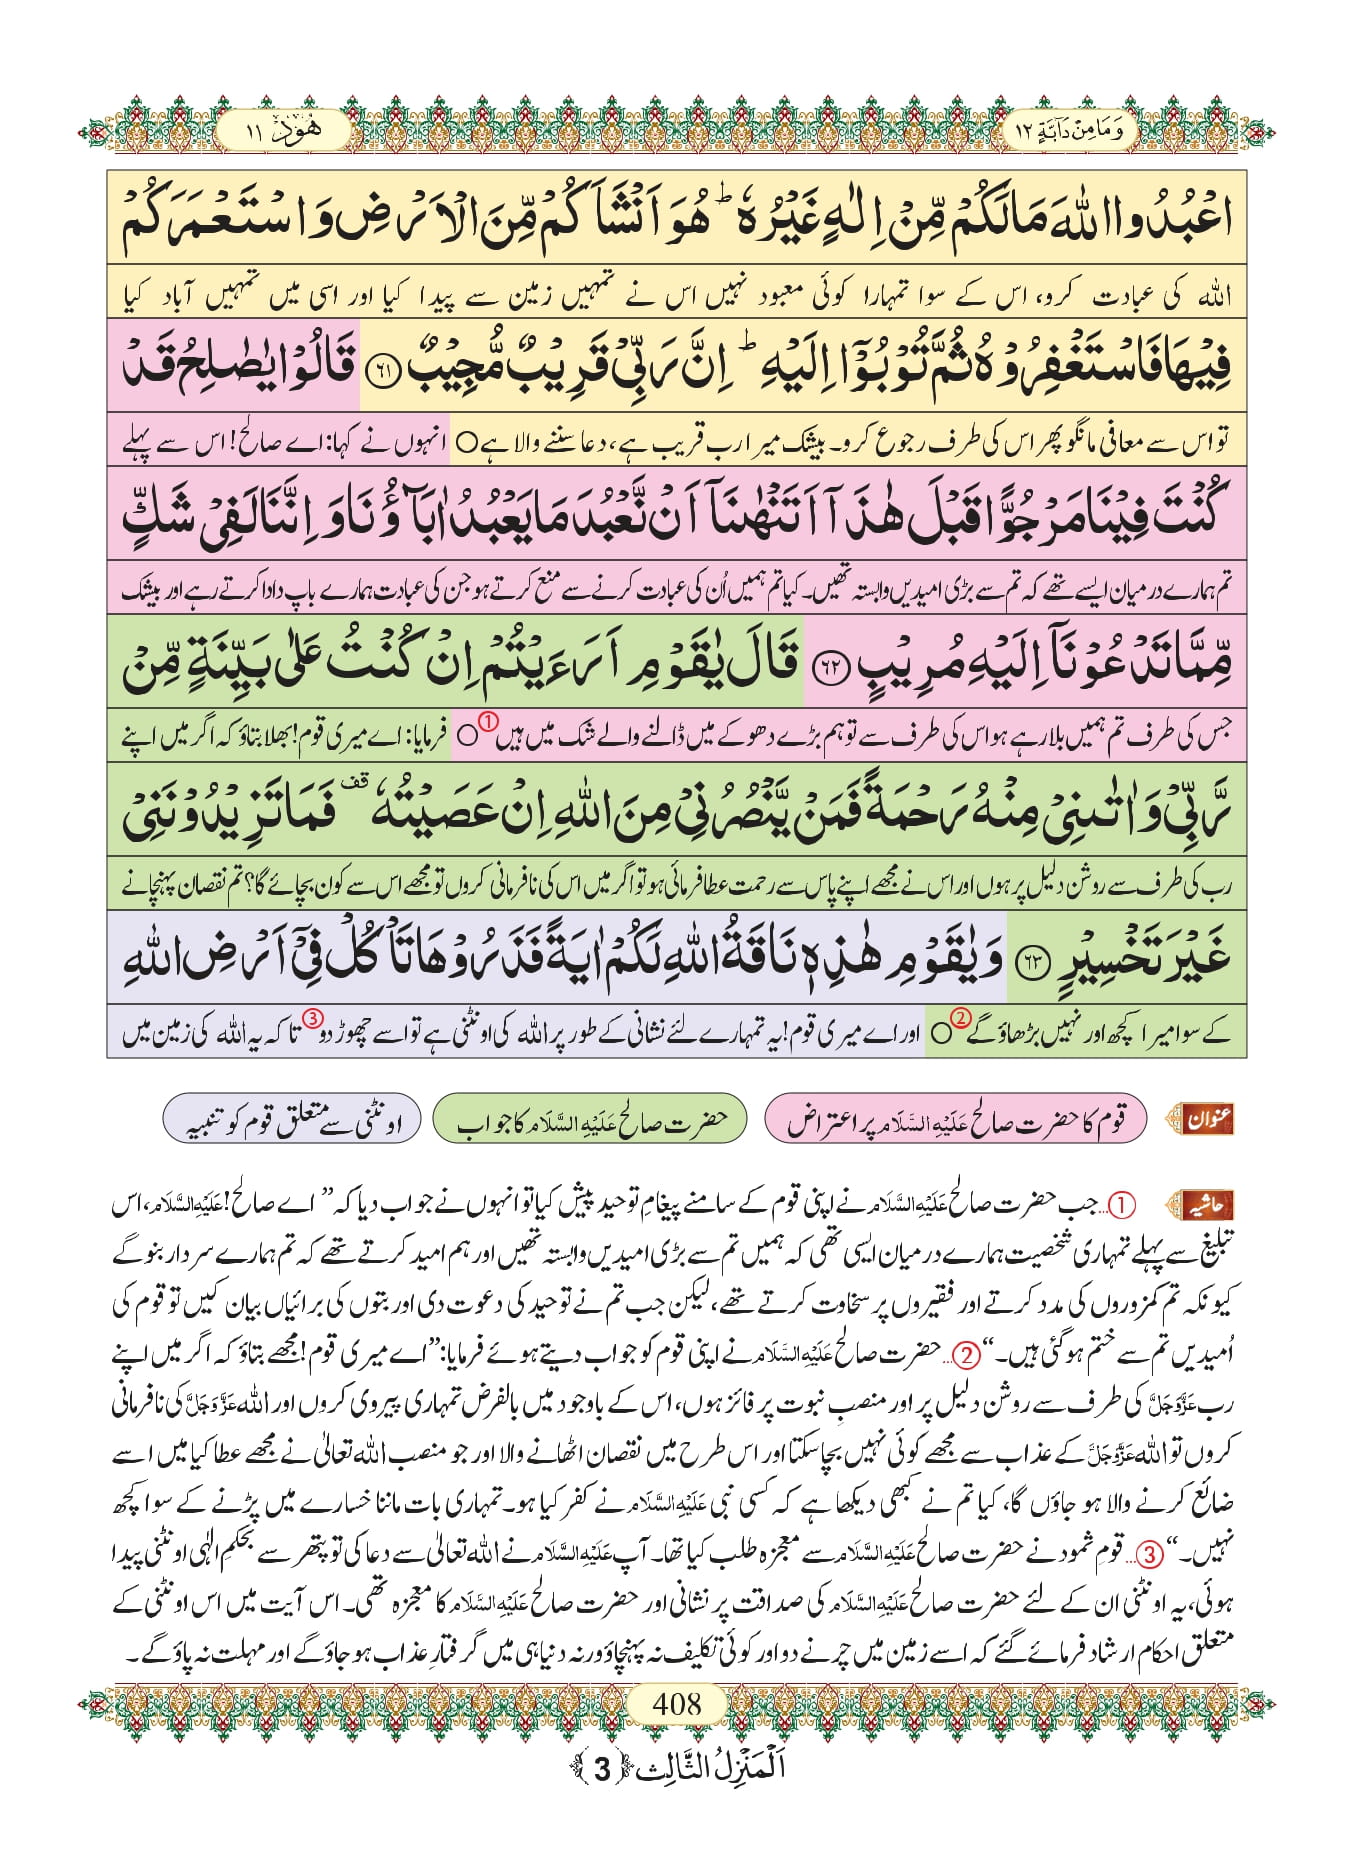 وَمَا مِنْ دَآبَّةٍ ١٢
هُوْد ١١
اعْبُدُوا اللّٰهَ مَا لَكُمْ مِّنْ اِلٰهٍ غَیْرُهٗ ؕ هُوَ اَنْشَاَكُمْ مِّنَ الْاَرْضِ وَ اسْتَعْمَرَكُمْ
اللہ کی عبادت کرو، اس کے سوا تمہارا کوئی معبود نہیں اس نے تمہیں زمین سے پیدا کیا اور اسی میں تمہیں آباد کیا
فِیْهَا فَاسْتَغْفِرُوْهُ ثُمَّ تُوْبُوْۤا اِلَیْهِ ؕ اِنَّ رَبِّیْ قَرِیْبٌ مُّجِیْبٌ ﴿٦١﴾ قَالُوْا یٰصٰلِحُ قَدْ
تو اس سے معافی مانگو پھر اس کی طرف رجوع کرو۔ بیشک میرا رب قریب ہے، دعا سننے والا ہے○ انہوں نے کہا: اے صالح! اس سے پہلے
كُنْتَ فِیْنَا مَرْجُوًّا قَبْلَ هٰذَاۤ اَتَنْهٰىنَاۤ اَنْ نَّعْبُدَ مَا یَعْبُدُ اٰبَآؤُنَا وَ اِنَّنَا لَفِیْ شَكٍّ
تم ہمارے درمیان ایسے تھے کہ تم سے بڑی امیدیں وابستہ تھیں۔ کیا تم ہمیں اُن کی عبادت کرنے سے منع کرتے ہو جن کی عبادت ہمارے باپ دادا کرتے رہے اور بیشک
مِّمَّا تَدْعُوْنَاۤ اِلَیْهِ مُرِیْبٍ ﴿٦٢﴾ قَالَ یٰقَوْمِ اَرَءَیْتُمْ اِنْ كُنْتُ عَلٰى بَیِّنَةٍ مِّنْ
جس کی طرف تم ہمیں بلا رہے ہو اس کی طرف سے تو ہم بڑے دھوکے میں ڈالنے والے شک میں ہیں① ○ فرمایا: اے میری قوم! بھلا بتاؤ کہ اگر میں اپنے
رَّبِّیْ وَ اٰتٰىنِیْ مِنْهُ رَحْمَةً فَمَنْ یَّنْصُرُنِیْ مِنَ اللّٰهِ اِنْ عَصَیْتُهٗ قف فَمَا تَزِیْدُوْنَنِیْ
رب کی طرف سے روشن دلیل پر ہوں اور اس نے مجھے اپنے پاس سے رحمت عطا فرمائی ہو تو اگر میں اس کی نافرمانی کروں تو مجھے اس سے کون بچائے گا؟ تم نقصان پہنچانے
غَیْرَ تَخْسِیْرٍ ﴿٦٣﴾ وَ یٰقَوْمِ هٰذِهٖ نَاقَةُ اللّٰهِ لَكُمْ اٰیَةً فَذَرُوْهَا تَاْكُلْ فِیْۤ اَرْضِ اللّٰهِ
کے سوا میرا کچھ اور نہیں بڑھاؤ گے② ○ اور اے میری قوم! یہ تمہارے لئے نشانی کے طور پر اللہ کی اونٹنی ہے تو اسے چھوڑ دو③ تاکہ یہ اللہ کی زمین میں
عنوان قوم کا حضرت صالح عَلَیْہِ السَّلَام پر اعتراض حضرت صالح عَلَیْہِ السَّلَام کا جواب اونٹنی سے متعلق قوم کو تنبیہ
حاشیہ ①...جب حضرت صالح عَلَیْہِ السَّلَام نے اپنی قوم کے سامنے پیغامِ توحید پیش کیا تو انہوں نے جواب دیا کہ ”اے صالح! عَلَیْہِ السَّلَام، اس
تبلیغ سے پہلے تمہاری شخصیت ہمارے درمیان ایسی تھی کہ ہمیں تم سے بڑی امیدیں وابستہ تھیں اور ہم امید کرتے تھے کہ تم ہمارے سردار بنو گے
کیونکہ تم کمزوروں کی مدد کرتے اور فقیروں پر سخاوت کرتے تھے، لیکن جب تم نے توحید کی دعوت دی اور بتوں کی برائیاں بیان کیں تو قوم کی
اُمیدیں تم سے ختم ہو گئی ہیں۔“ ②...حضرت صالح عَلَیْہِ السَّلَام نے اپنی قوم کو جواب دیتے ہوئے فرمایا: ”اے میری قوم! مجھے بتاؤ کہ اگر میں اپنے
رب عَزَّوَجَلَّ کی طرف سے روشن دلیل پر اور منصبِ نبوت پر فائز ہوں، اس کے باوجود میں بالفرض تمہاری پیروی کروں اور اللہ عَزَّوَجَلَّ کی نافرمانی
کروں تو اللہ عَزَّوَجَلَّ کے عذاب سے مجھے کوئی نہیں بچا سکتا اور اس طرح میں نقصان اٹھانے والا اور جو منصب اللہ تعالیٰ نے مجھے عطا کیا میں اسے
ضائع کرنے والا ہو جاؤں گا، کیا تم نے کبھی دیکھا ہے کہ کسی نبی عَلَیْہِ السَّلَام نے کفر کیا ہو۔ تمہاری بات ماننا خسارے میں پڑنے کے سوا کچھ
نہیں۔“ ③...قومِ ثمود نے حضرت صالح عَلَیْہِ السَّلَام سے معجزہ طلب کیا تھا۔ آپ عَلَیْہِ السَّلَام نے اللہ تعالیٰ سے دعا کی تو پتھر سے بحکمِ الٰہی اونٹنی پیدا
ہوئی، یہ اونٹنی ان کے لئے حضرت صالح عَلَیْہِ السَّلَام کی صداقت پر نشانی اور حضرت صالح عَلَیْہِ السَّلَام کا معجزہ تھی۔ اس آیت میں اس اونٹنی کے
متعلق احکام ارشاد فرمائے گئے کہ اسے زمین میں چرنے دو اور کوئی تکلیف نہ پہنچاؤ ورنہ دنیا ہی میں گرفتارِ عذاب ہو جاؤ گے اور مہلت نہ پاؤ گے۔
408
اَلْمَنْزِلُ الثَّالِث ﴿3﴾